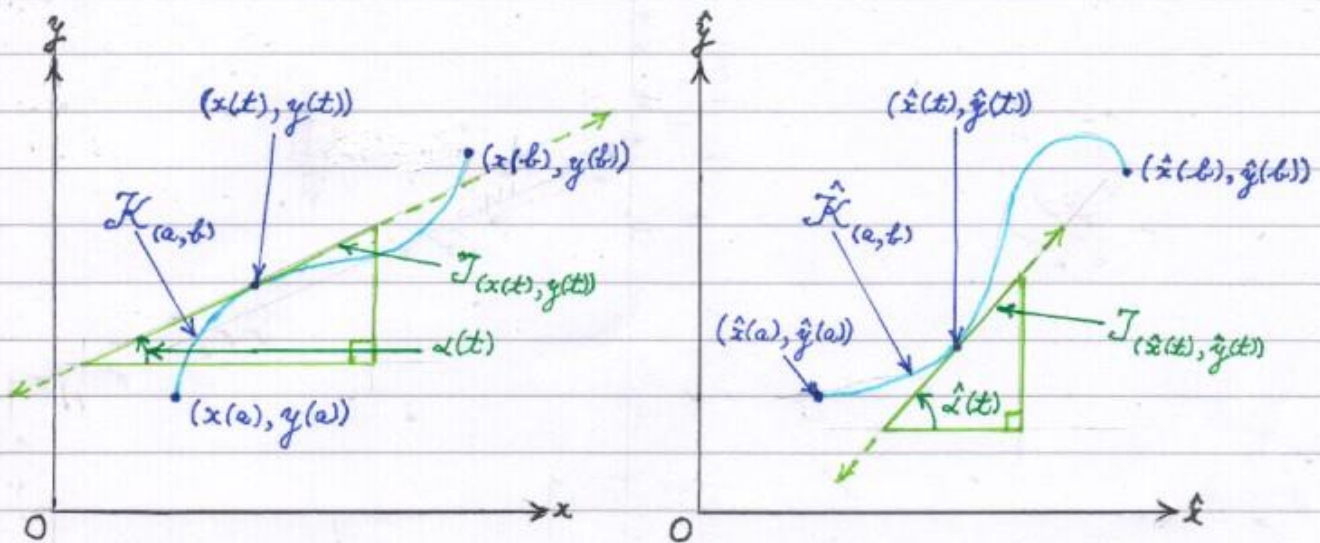 y
(x(t), y(t))
(x(b), y(b))
K(a,b)
T(x(t), y(t))
α(t)
(x(a), y(a))
O
x
ŷ
(x̂(t), ŷ(t))
(x̂(b), ŷ(b))
K̂(a,b)
(x̂(a), ŷ(a))
T(x̂(t), ŷ(t))
α̂(t)
O
x̂